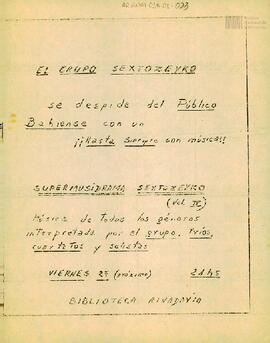 El GRUPO SEXTOZEYRO
se despide del Público
Bahiense con un
¡¡Hasta siempre con música!!
SUPERMUSIDRAMA SEXTOZEYRO
(Vol IV)
Música de todos los géneros
interpretada por el grupo, tríos,
cuartetos y solistas
VIERNES 2º (próximo) 21 hs
BIBLIOTECA RIVADAVIA